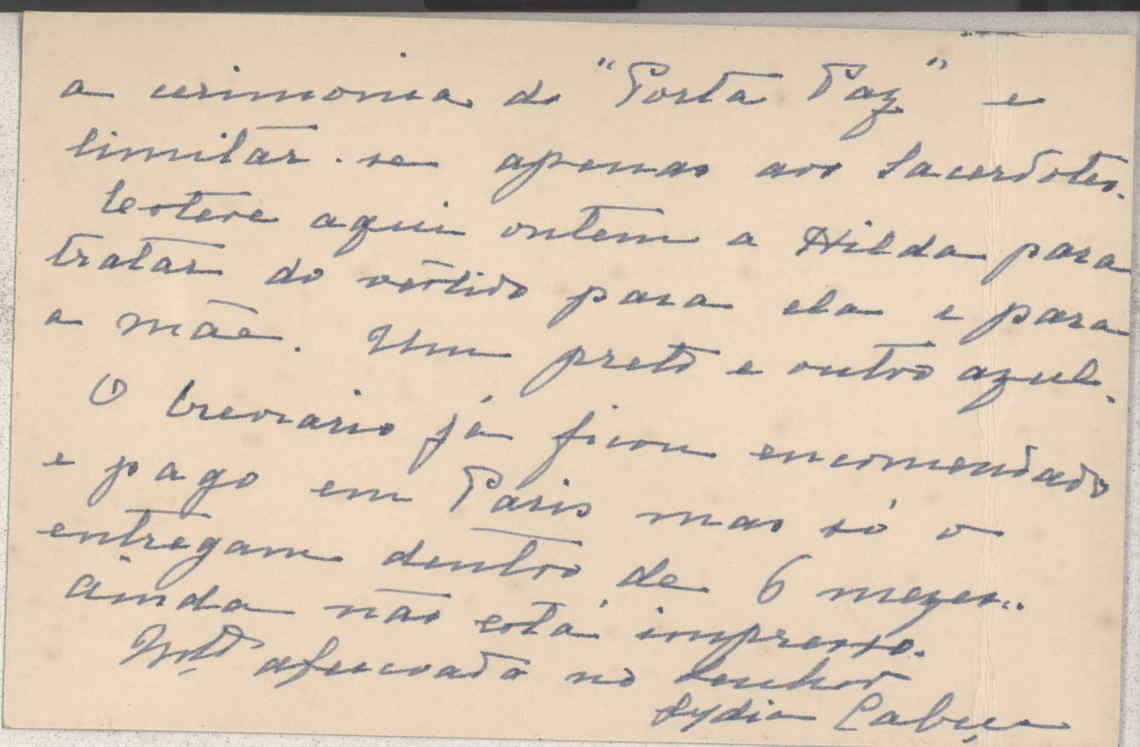 a cerimonia do "Porta Paz" e
limitar-se apenas aos Sacerdotes.
Esteve aqui ontem a Hilda para
tratar do vestido para ela e para
a mãe. Um preto e outro azul.
O breviario já ficou encomendado
e pago em Paris mas só o
entregam dentro de 6 mezes..
Ainda não está impresso.
Mtº afeiçoada no Senhor
Lydia Cabeça